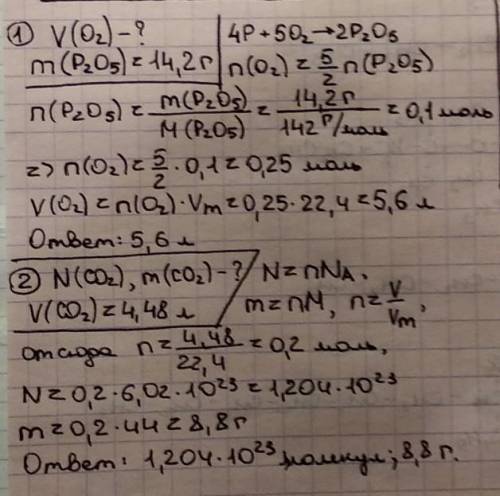 ① V(O₂) – ?
m(P₂O₅) = 14,2 г
4P + 5O₂ → 2P₂O₅
n(O₂) = 5/2 n(P₂O₅)
n(P₂O₅) = m(P₂O₅)/M(P₂O₅) = 14,2 г/142 г/моль = 0,1 моль
=> n(O₂) = 5/2 · 0,1 = 0,25 моль
V(O₂) = n(O₂) · Vm = 0,25 · 22,4 = 5,6 л
Ответ: 5,6 л
② N(CO₂), m(CO₂) – ?
V(CO₂) = 4,48 л
N = nNA,
m = nM, n = V/Vm,
отсюда n = 4,48/22,4 = 0,2 моль,
N = 0,2 · 6,02 · 10²³ = 1,204 · 10²³
m = 0,2 · 44 = 8,8 г
Ответ: 1,204 · 10²³ молекул; 8,8 г.